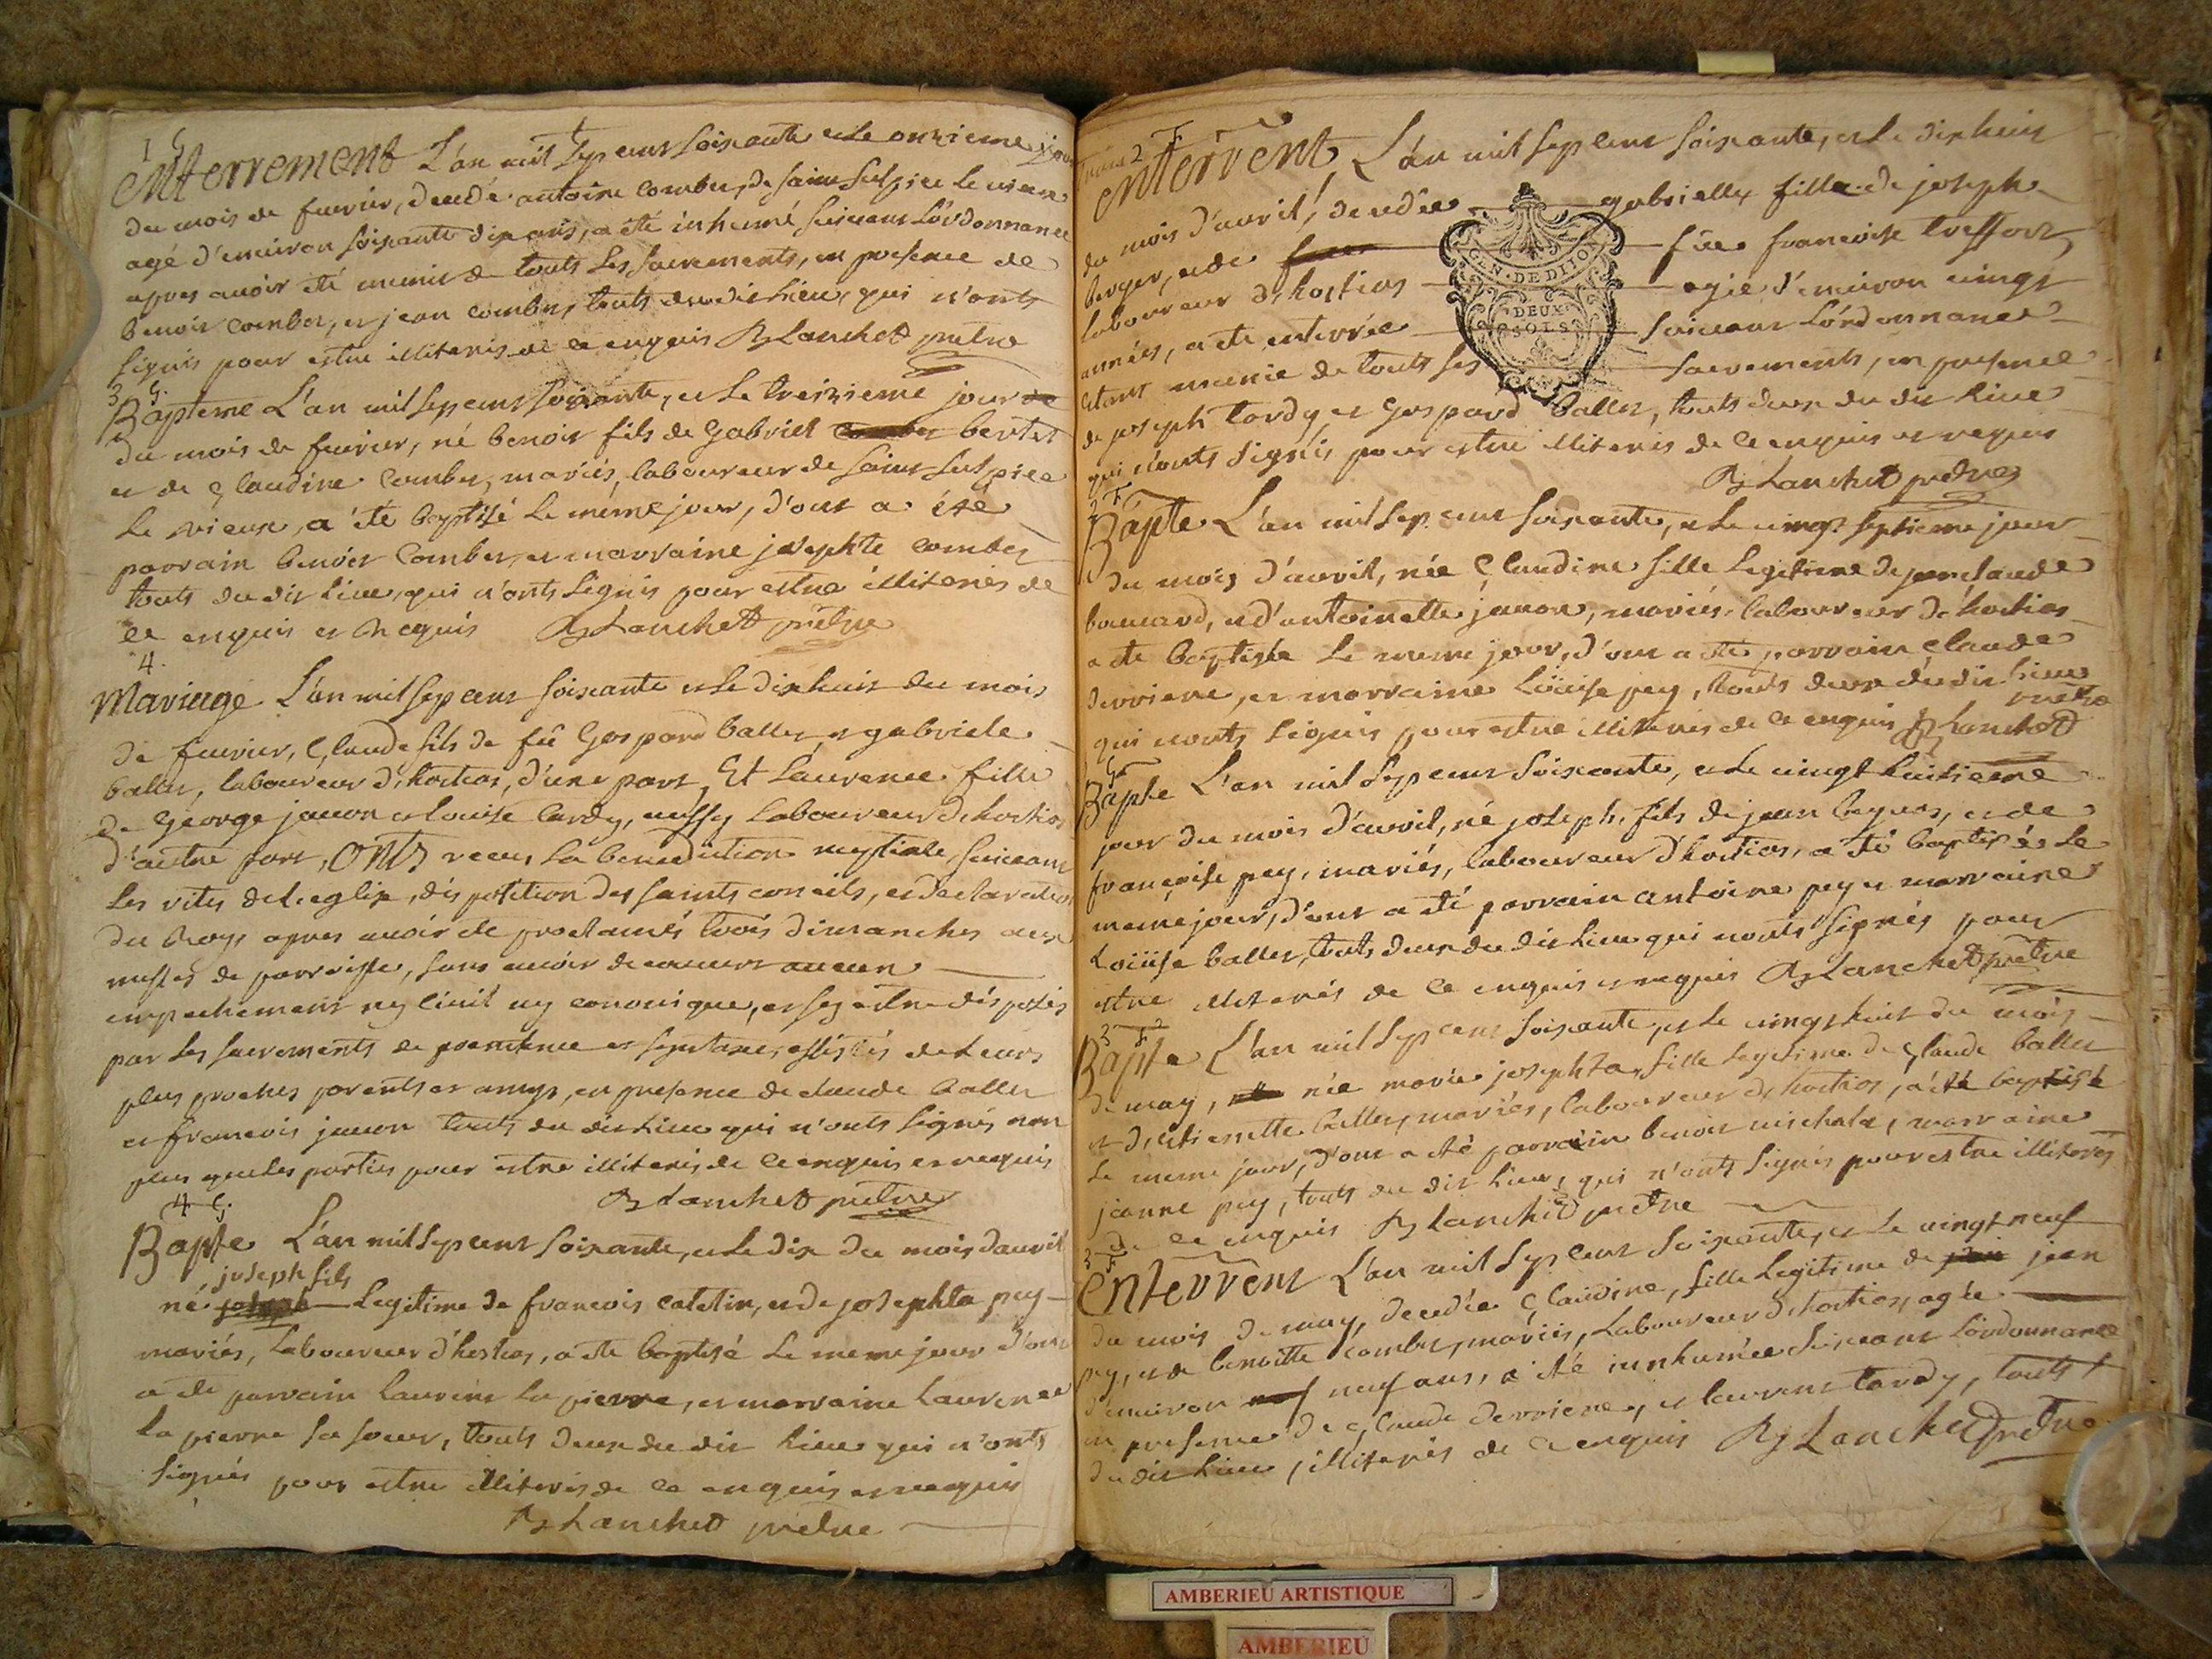 1 G
Enterrement L'an mil sept cent soixante et le onzieme jour
du mois de fevrier, decedé antoine combet, de saint sulpice le vieux
agé d'environ soixante dix ans, a été inhumé suivant l'ordonnance
apres avoir été munis de touts les sacrements, en presence de
benoit combet, et jean combet, touts du dit lieu, qui n'onts
signés pour estre illiterés de ce enquis Lanchet prêtre
3 G.
Bapteme L'an mil sept cent soixante, et le treizieme jour
du mois de fevrier, né benoit fils de Gabriel bertet
et de Claudine Combet, mariés, laboureur de saint sulpice
le vieux, a été baptisé le même jour, d'ont a été
parrain benoit Combet, et marraine josephte combet
touts du dit lieu, qui n'onts signés pour estre illiterés de
ce enquis et requis Lanchet prêtre
4.
Mariage L'an mil sept cent soixante et le dix huit du mois
de fevrier, Claude fils de fû Gaspard ballet et gabriele
ballet, laboureur d'hostias, d'une part, Et Laurence fille
de George janon et louise tardy, aussy laboureur d'hostias
d'autre part, ONTS receu la benediction nuptiale, suivant
les rites de l'eglise, disposition des saints conciles, et declaration
du Roys apres avoir été proclamés trois dimanches aux
messes de parroisse, sans avoir decouvert aucun
empechement ny civil ny canonique, et s'y estre disposés
par les sacrements de penitence et assistés de leurs
plus proches parents et amys, en presence de claude ballet
et francois janon touts du dit lieu qui n'onts signés non
plus que les parties pour estre illiterés de ce enquis et requis
Lanchet prêtre
4 G.
Bapte L'an mil sept cent soixante, et le dix du mois davril
joseph fils
né legitime de francois catetin, et de josephta pey
mariés, laboureur d'hostias, a été baptisé le meme jour d'ont
a été parrain laurent la pierre, et marraine laurence
la pierre sa soeur, touts deux du dit lieu qui n'onts
signés pour estre illiterés de ce enquis et requis
Lanchet prêtre
2 F
Enterrent, L'an mil sept cent soixante, et le dix huit
du mois d'avril, decedée gabrielle fille de joseph
berger, et de fûe francoise treffort,
laboureur d'hostias agée d'environ vingt
années, a été enterrée suivant l'ordonnance
etant munie de touts ses sacrements, en presence
de joseph tardy, et Gaspard ballet, touts deux du dit lieu
qui n'onts signés pour estre illiterés de ce enquis et requis
Lanchet prêtre
GEN. DE DIJON
DEUX
SOLS
2 F
Bapte L'an mil sept cent soixante, et le vingt septieme jour
du mois d'avril, née Claudine fille legitime de jean claude
bancard, et d'antoinette janon, mariés, laboureur d'hostias
a été baptisée le meme jour, d'ont a été parrain claude
derriere, et marraine Loüise pey, touts deux du dit lieu
qui n'onts signés pour estre illiterés de ce enquis Lanchet prêtre
5 G
Bapte L'an mil sept cent soixante, et le vingt huitieme
jour du mois d'avril, né joseph, fils de jean, et de
françoise pey, mariés, laboureur d'hostias, a été baptisé le
meme jour, d'ont a été parrain antoine pey et marraine
Loüise ballet, touts deux du dit lieu qui n'onts signés pour
estre illiterés de ce enquis et requis Lanchet prêtre
3 F 2
Bapte L'an mil sept cent soixante, et le vingt huit du mois
de may, née marie josephta, fille legitime de Claude ballet
et d'estiennette ballet, mariés, laboureur d'hostias, a été baptisé
le meme jour, d'ont a été parrain benoit michala, marraine
jeanne pey, touts du dit lieu, qui n'onts signés pour estre illiterés
de ce enquis Lanchet prêtre
3 F
Enterrent L'an mil sept cent soixante, et le vingt neuf
du mois de may, decedée Claudine, fille legitime de jean
pey, et de benoitte combet, mariés, laboureur d'hostias, agée
d'environ neuf ans, a été innhumée suivant l'ordonnance
en presence de Claude derriere, et laurent tardy, touts
du dit lieu, illiterés de ce enquis Lanchet prêtre
AMBERIEU ARTISTIQUE
AMBERIEU